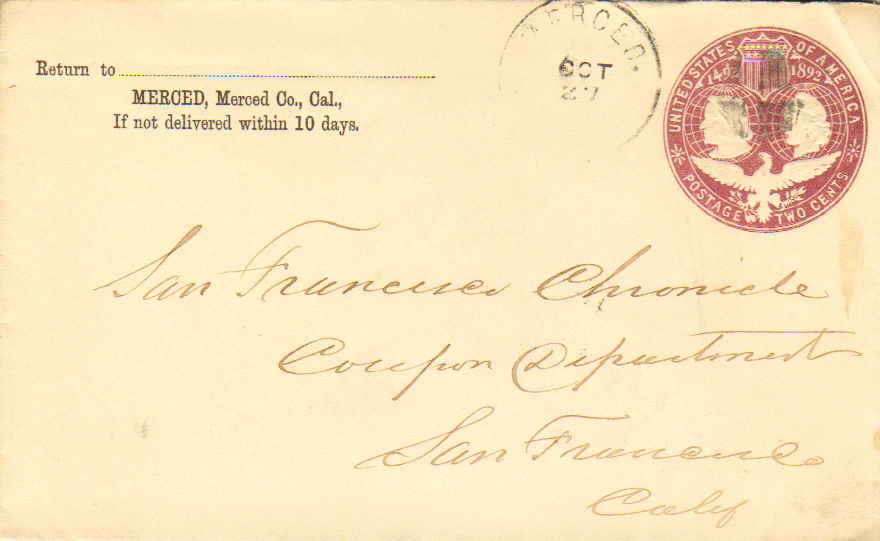 Return to
MERCED, Merced Co., Cal.,
If not delivered within 10 days.
MERCED.
OCT
27
UNITED STATES OF AMERICA
1492 1892
POSTAGE TWO CENTS
San Francisco Chronicle
Coupon Department
San Francisco
Calif